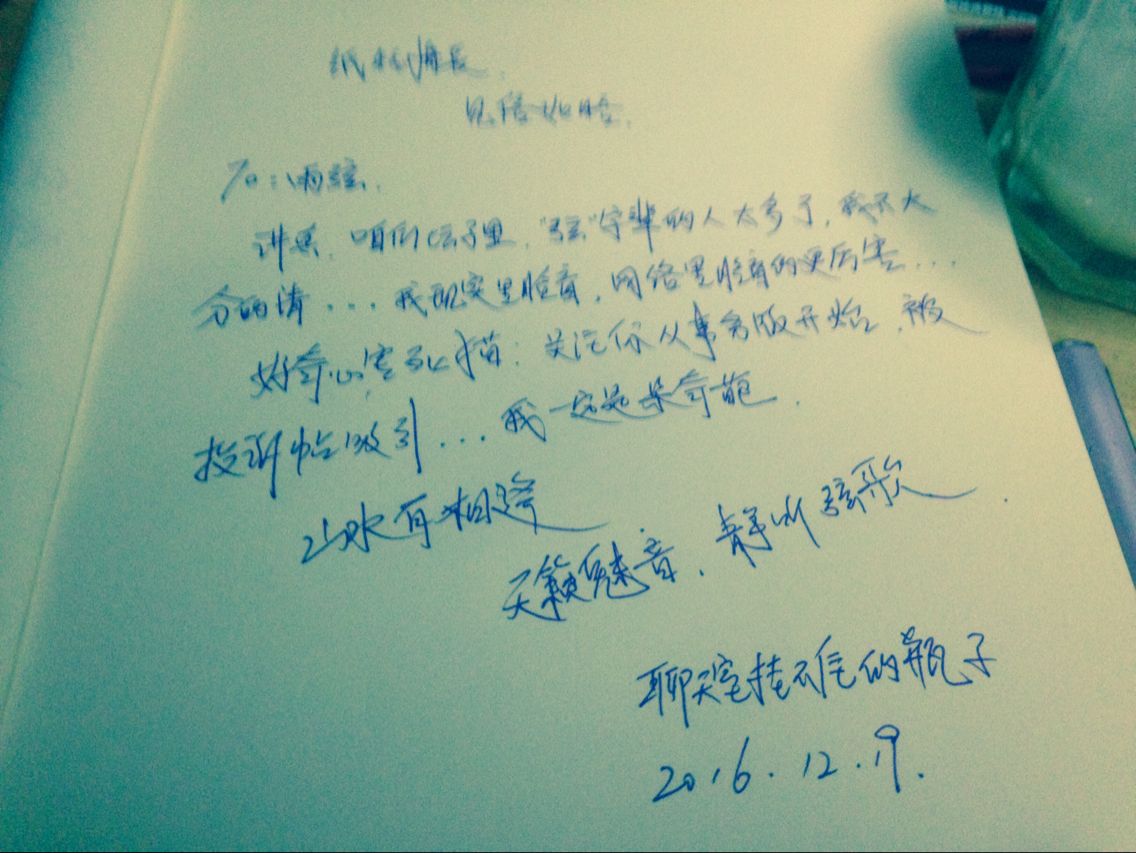 纸短情长，
见信如晤。
To：雨弦，
讲真，咱们坛子里，“弦”字辈的人太多了，我不大
分的清...我现实里脸盲，网络里脸盲的更厉害...
好奇心害死猫；关注你从事务版开始，被
投诉帖吸引...我一定是朵奇葩．
山水有相逢
天籁魅音，静听弦歌．
聊天室挂不住的瓶子
2016.12.19.